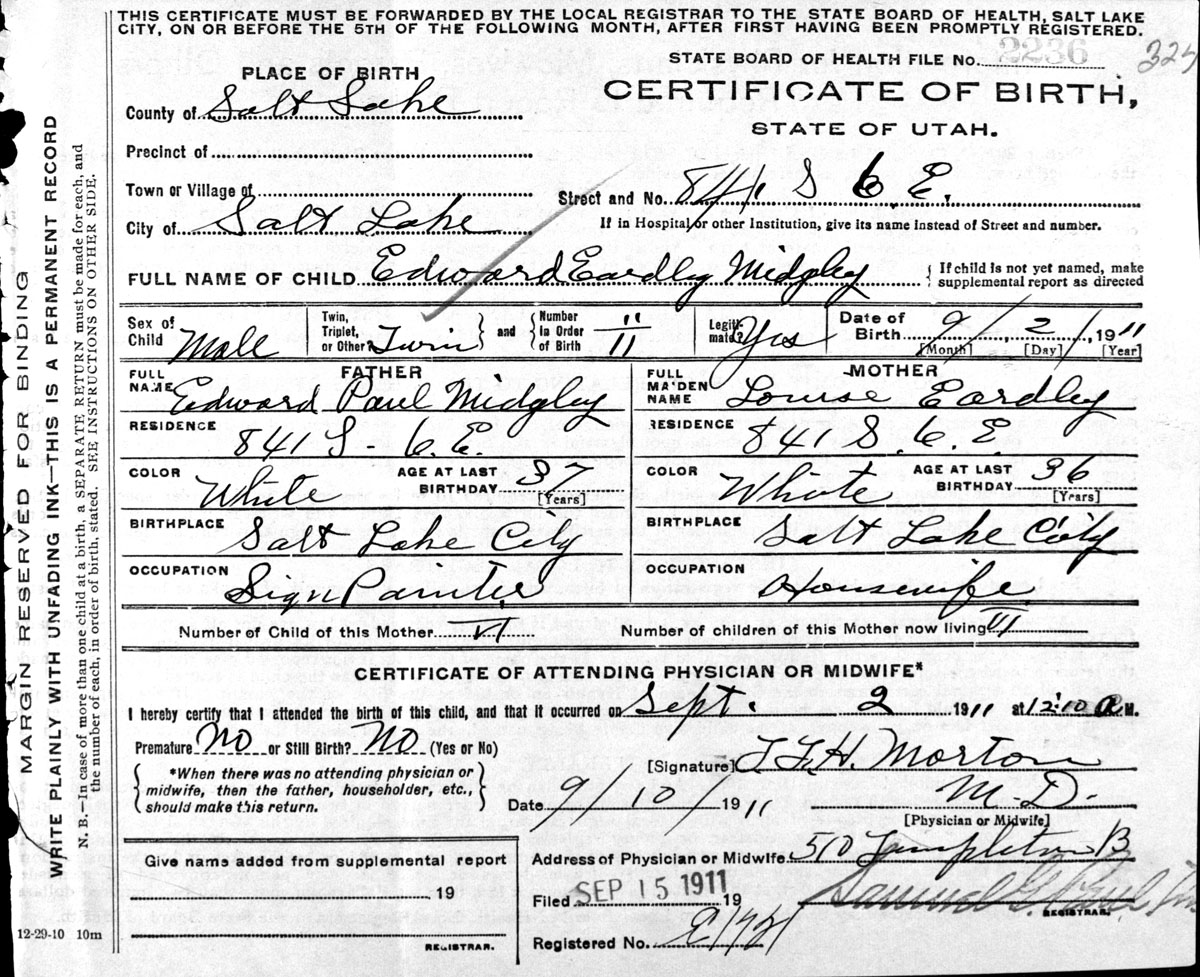 THIS CERTIFICATE MUST BE FORWARDED BY THE LOCAL REGISTRAR TO THE STATE BOARD OF HEALTH, SALT LAKE
CITY, ON OR BEFORE THE 5TH OF THE FOLLOWING MONTH, AFTER FIRST HAVING BEEN PROMPTLY REGISTERED.
MARGIN RESERVED FOR BINDING
WRITE PLAINLY WITH UNFADING INK—THIS IS A PERMANENT RECORD
N. B.—In case of more than one child at a birth, a SEPARATE RETURN must be made for each, and
the number of each, in order of birth, stated. SEE INSTRUCTIONS ON OTHER SIDE.
STATE BOARD OF HEALTH FILE No. 2236
PLACE OF BIRTH
CERTIFICATE OF BIRTH,
County of Salt Lake
STATE OF UTAH.
Precinct of
Town or Village of
Street and No. 841 S 6 E.
City of Salt Lake
If in Hospital or other Institution, give its name instead of Street and number.
FULL NAME OF CHILD Edward Eardly Midgley { If child is not yet named, make
supplemental report as directed
Sex of Child Male
Twin, Triplet, or Other? Twin } and { Number in Order of Birth II
Legitimate? Yes
Date of Birth 9 / 2 / 1911
[Month] [Day] [Year]
FATHER
FULL NAME Edward Paul Midgley
RESIDENCE 841 S - 6. E.
COLOR White AGE AT LAST BIRTHDAY 37 [Years]
BIRTHPLACE Salt Lake City
OCCUPATION Sign Painter
MOTHER
FULL MAIDEN NAME Louise Eardley
RESIDENCE 841 S. 6. E.
COLOR White AGE AT LAST BIRTHDAY 36 [Years]
BIRTHPLACE Salt Lake City
OCCUPATION Housewife
Number of Child of this Mother VI Number of children of this Mother now living
CERTIFICATE OF ATTENDING PHYSICIAN OR MIDWIFE*
I hereby certify that I attended the birth of this child, and that it occurred on Sept. 2 1911 at 12:10 a M.
Premature No or Still Birth? No (Yes or No)
*When there was no attending physician or
midwife, then the father, householder, etc.,
should make this return.
[Signature] Morton
M.D.
Date 9/10/1911
[Physician or Midwife]
Give name added from supplemental report
19
REGISTRAR.
Address of Physician or Midwife 510 Templeton B
Filed SEP 15 1911 19
REGISTRAR.
Registered No.
12-29-10 10m